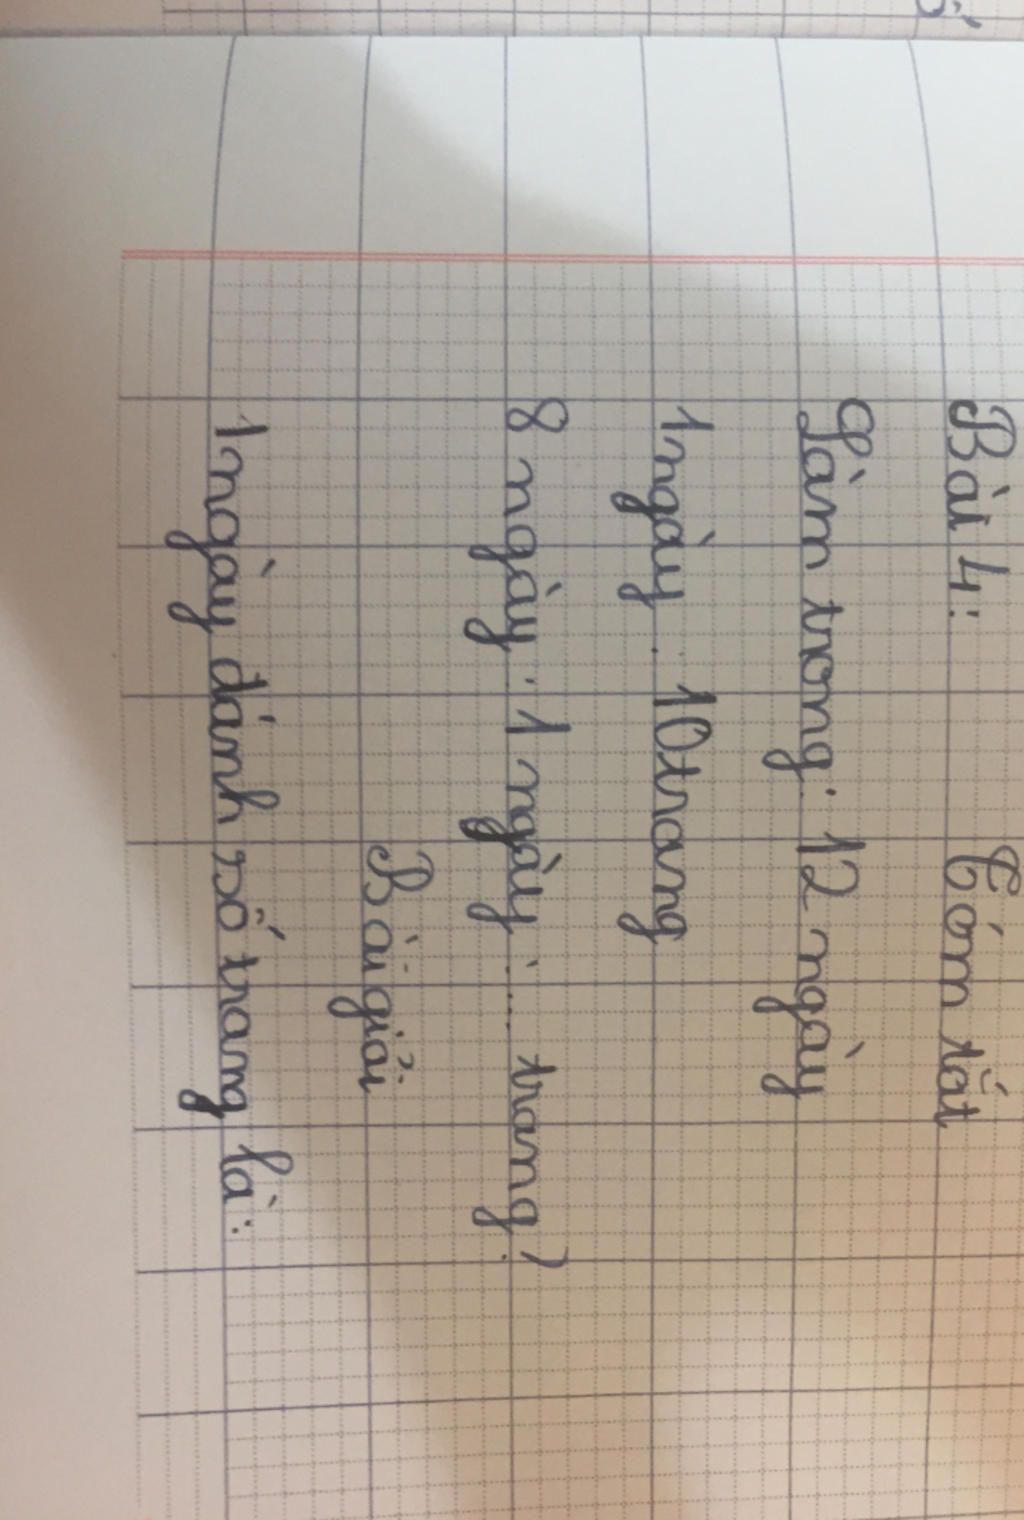 Bài 4: Tóm tắt
Làm trong: 12 ngày
1 ngày: 10 trang
8 ngày: 1 ngày: ... trang?
Bài giải
1 ngày đánh số trang là: